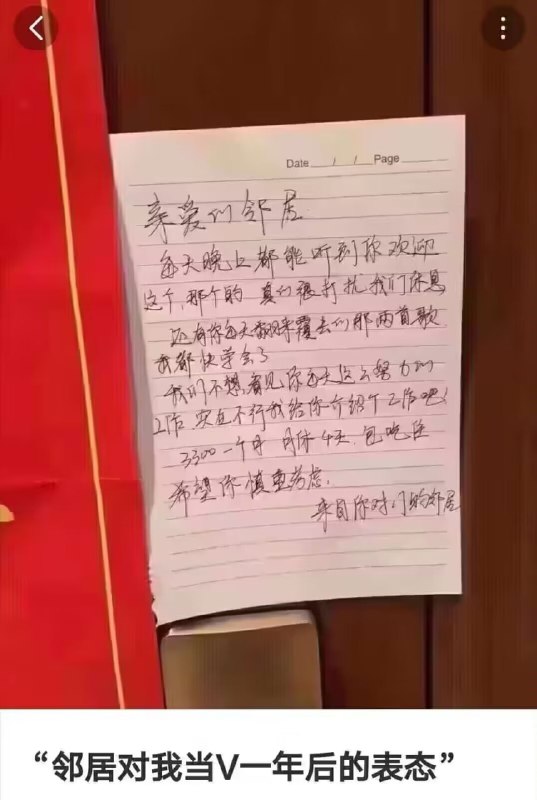 Date / / Page
亲爱的邻居
每天晚上都能听到你欢迎
这个,那个的 真的很打扰我们休息
还有你每天翻来覆去的那两首歌
我都快学会了
我们不想看见你每天这么努力的
工作 实在不行我给你介绍个工作吧!
3300一个月 月休4天.包吃住
希望你慎重考虑.
来自你对门的邻居
“邻居对我当V一年后的表态”